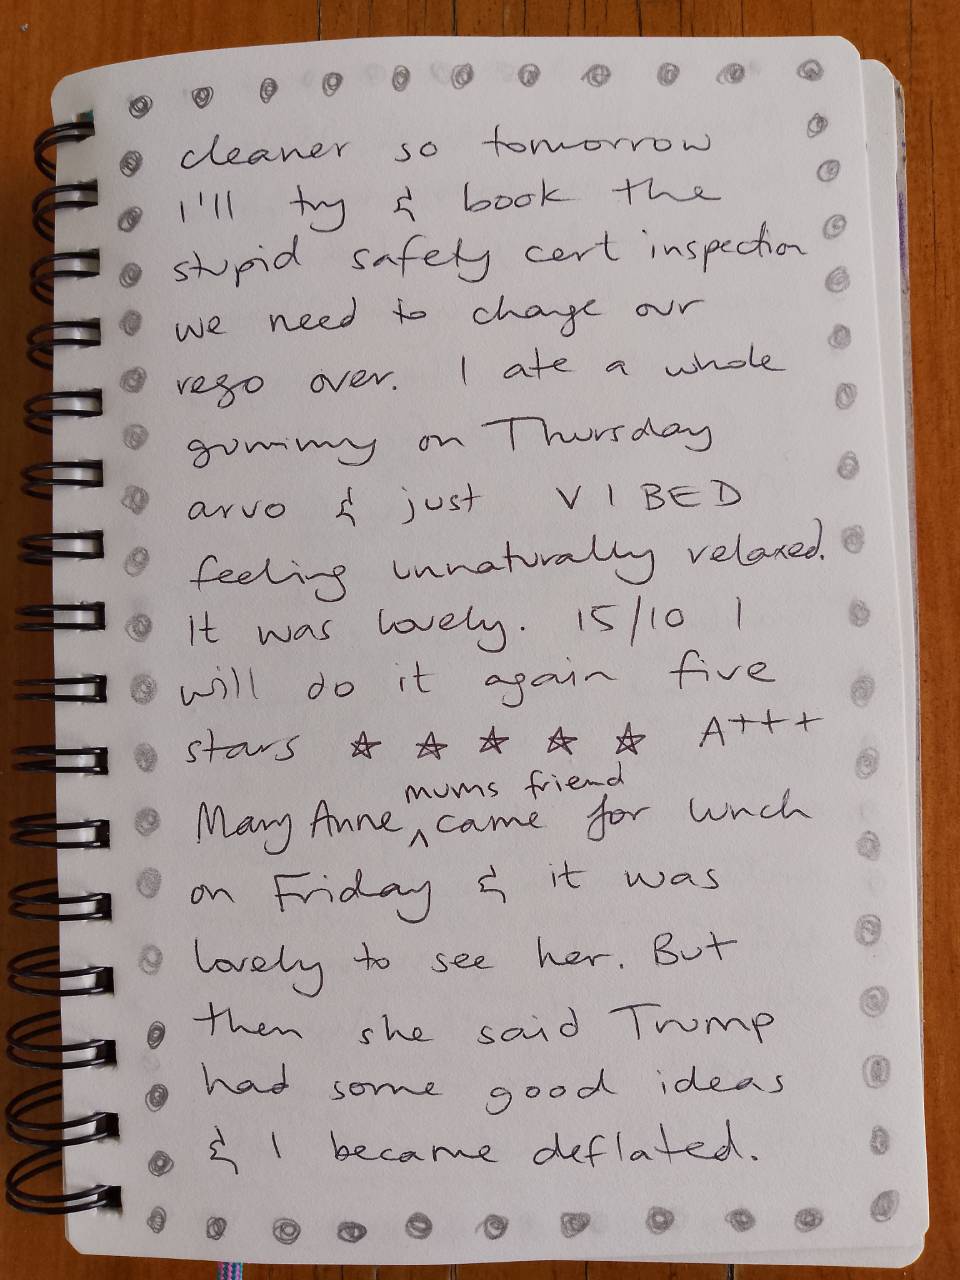 cleaner so tomorrow
I'll try & book the
stupid safety cert inspection
we need to change our
rego over. I ate a whole
gummy on Thursday
arvo & just VIBED
feeling unnaturally relaxed.
It was lovely. 15/10 I
will do it again five
stars ☆ ☆ ☆ ☆ ☆ A+++
mums friend
Mary Anne ^ came for lunch
on Friday & it was
lovely to see her. But
then she said Trump
had some good ideas
& I became deflated.